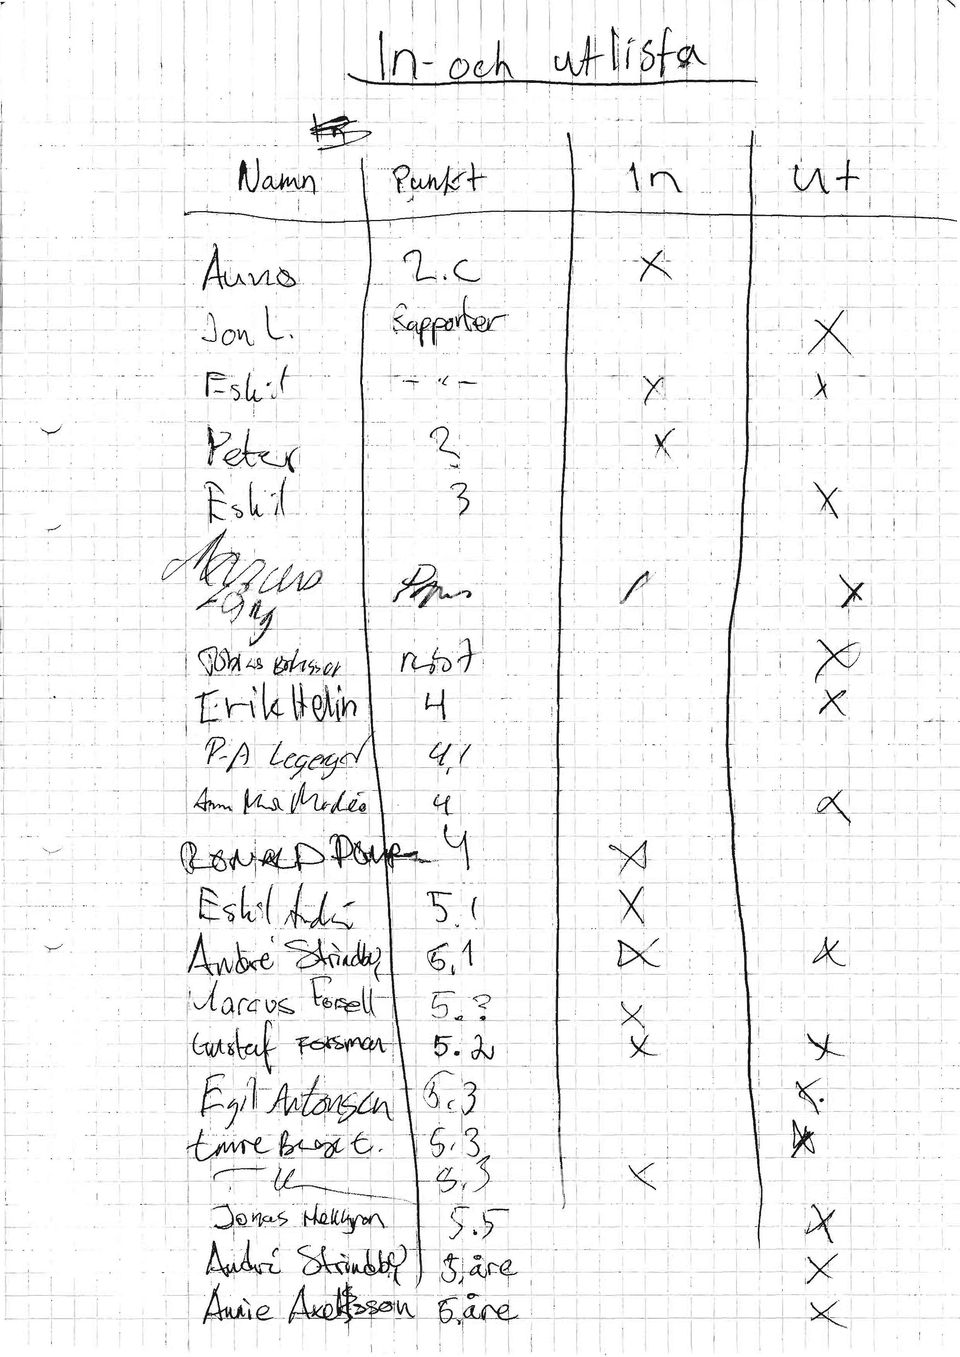 In- och utlista
Namn Punkt In Ut
2.c X
Jon L. Rapporter X
Eskil - " - X X
Peter 2 X
Eskil 3 X
Marcus X
X
Erik Helin 4 X
P-A 4,1
4
RONALD 4 X
Eskil André 5.1 X
André Strindby 5,1 X X
Marcus Forsell 5.? X
Gustaf Forsman 5.2 X X
Egil Antonsen 5.3 X.
Emre 5.3 X
- " - 5.3 X
Jonas Hellgren 5.5 X
André Strindby 5, åre X
Annie Axelsson 5, åre X